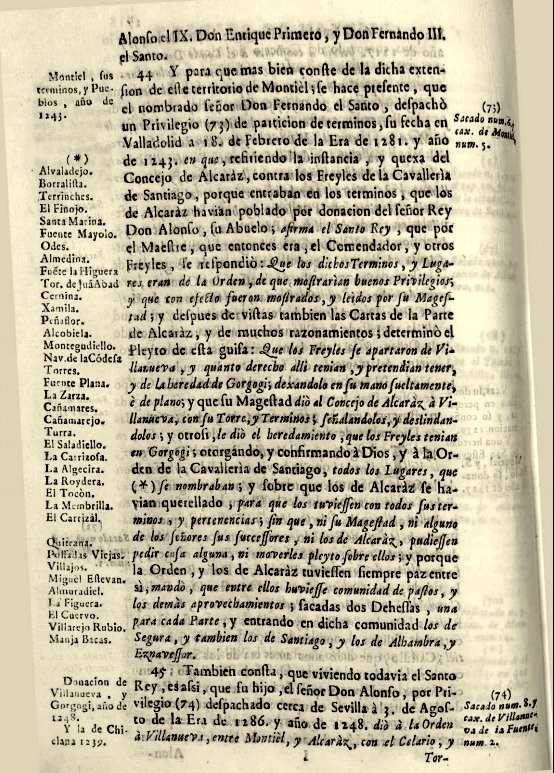 Alonso el IX. Don Enrique Primero, y Don Fernando III.
el Santo.
44 Y para que mas bien conste de la dicha exten-
sion de este territorio de Montiel; se hace presente, que
el nombrado señor Don Fernando el Santo, despachò
un Privilegio (73) de particion de terminos, su fecha en
Valladolid a 18. de Febrero de la Era de 1281. y año
de 1243. en que, refiriendo la instancia, y quexa del
Concejo de Alcaràz, contra los Freyles de la Cavallerìa
de Santiago, porque entraban en los terminos, que los
de Alcaràz havian poblado por donacion del señor Rey
Don Alonso, su Abuelo; afirma el Santo Rey, que por
el Maestre, que entonces era, el Comendador, y otros
Freyles, se respondiò: Que los dichos Terminos, y Luga-
res eran de la Orden, de que mostrarian buenos Privilegios;
y que con efecto fueron mostrados, y leidos por su Mages-
tad; y despues de vistas tambien las Cartas de la Parte
de Alcaràz, y de muchos razonamientos; determinò el
Pleyto de esta guisa: Que los Freyles se apartaron de Vi-
llanueva, y quanto derecho alli tenian, y pretendian tener,
y de la heredad de Gorgogi; dexandolo en su mano sueltamente,
è de plano; y que su Magestad diò al Concejo de Alcaràz à Vi-
llanueva, con su Torre, y Terminos; señalandolos, y deslindan-
dolos; y otrosi, le diò el heredamiento, que los Freyles tenian
en Gorgogi; otorgando, y confirmando à Dios, y à la Or-
den de la Cavallerìa de Santiago, todos los Lugares, que
(*) se nombraban; y sobre que los de Alcaràz se ha-
vian querellado, para que los tuviessen con todos sus ter-
minos, y pertenencias; sin que, ni su Magestad, ni alguno
de los señores sus successores, ni los de Alcaràz, pudiessen
pedir cosa alguna, ni moverles pleyto sobre ellos; y porque
la Orden, y los de Alcaràz tuviessen siempre paz entre
sì, mandò, que entre ellos huviesse comunidad de pastos, y
los demàs aprovechamientos; sacadas dos Dehessas, una
para cada Parte, y entrando en dicha comunidad los de
Segura, y tambien los de Santiago, y los de Alhambra, y
Eznavessor.
45 Tambien consta, que viviendo todavia el Santo
Rey, es assi, que su hijo, el señor Don Alonso, por Pri-
vilegio (74) despachado cerca de Sevilla à 3. de Agos-
to de la Era de 1286. y año de 1248. diò à la Orden
à Villanueva, entre Montièl, y Alcaràz, con el Celario, y
Tor-
Montiel, sus
terminos, y Pue-
blos, año de
1243.
(*)
Alvaladejo.
Borralista.
Terrinches.
El Finojo.
Santa Marina.
Fuente Mayolo.
Odes.
Almedina.
Fuẽte la Higuera
Tor. de Juã Abad
Cernina.
Xamila.
Peñaflor.
Alcobiela.
Montegudiello.
Nav. de la Cõdesa
Torres.
Fuente Plana.
La Zarza.
Cañamares.
Cañamarejo.
Turra.
El Saladiello.
La Carrizosa.
La Algecira.
La Roydera.
El Tocòn.
La Membrilla.
El Carrizàl.
Quitrana.
Posadas Viejas.
Villajos.
Miguèl Estevan.
Almuradiel.
La Figuera.
El Cuervo.
Villarejo Rubio.
Manja Bacas.
Donacion de
Villanueva, y
Gorgogi, año de
1248.
Y la de Chi-
clana 1239.
(73)
Sacado num. 6.
cax. de Montiel,
num. 5.
(74)
Sacado num. 8. y
cax. de Villanue-
va de la Fuente,
num. 2.